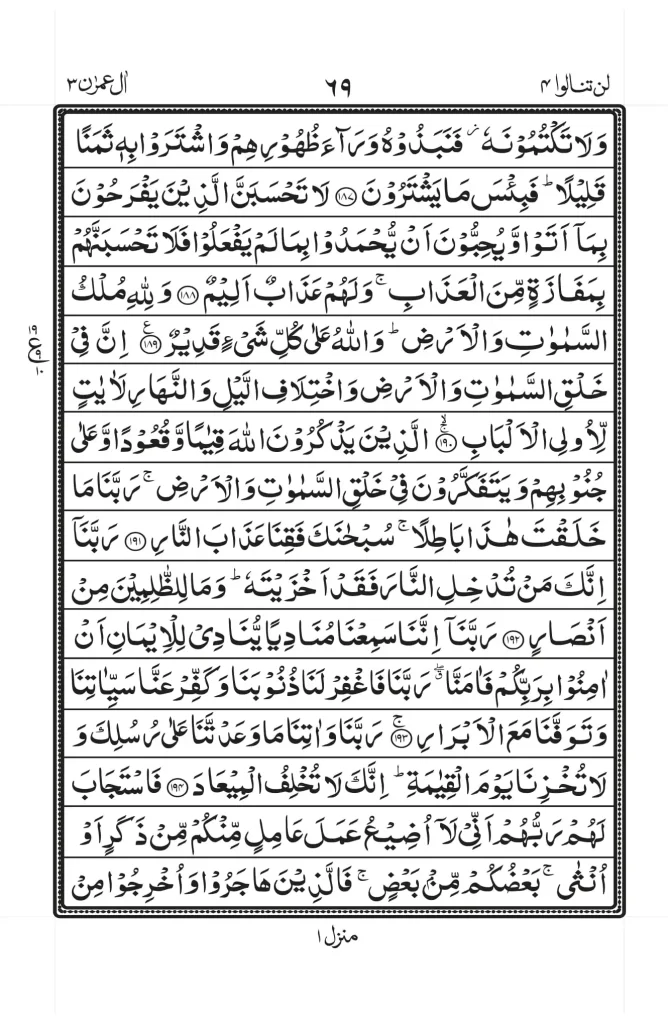 لن تنالوا ۴
٦٩
اٰل عمرٰن ۳
وَلَا تَكْتُمُوْنَهٗ ۫ فَنَبَذُوْهُ وَرَآءَ ظُهُوْرِهِمْ وَاشْتَرَوْا بِهٖ ثَمَنًا
قَلِيْلًا ؕ فَبِئْسَ مَا يَشْتَرُوْنَ ﴿۱۸۷﴾ لَا تَحْسَبَنَّ الَّذِيْنَ يَفْرَحُوْنَ
بِمَاۤ اَتَوْا وَّيُحِبُّوْنَ اَنْ يُّحْمَدُوْا بِمَا لَمْ يَفْعَلُوْا فَلَا تَحْسَبَنَّهُمْ
بِمَفَازَةٍ مِّنَ الْعَذَابِ ۚ وَلَهُمْ عَذَابٌ اَلِيْمٌ ﴿۱۸۸﴾ وَلِلّٰهِ مُلْكُ
السَّمٰوٰتِ وَالْاَرْضِ ؕ وَاللّٰهُ عَلٰى كُلِّ شَىْءٍ قَدِيْرٌ ﴿۱۸۹﴾ ع اِنَّ فِيْ
۱۹
ع ۹
۱۰
خَلْقِ السَّمٰوٰتِ وَالْاَرْضِ وَاخْتِلَافِ الَّيْلِ وَالنَّهَارِ لَاٰيٰتٍ
لِّاُولِى الْاَلْبَابِ ﴿۱۹۰﴾ۚۙ الَّذِيْنَ يَذْكُرُوْنَ اللّٰهَ قِيٰمًا وَّقُعُوْدًا وَّعَلٰى
جُنُوْبِهِمْ وَيَتَفَكَّرُوْنَ فِيْ خَلْقِ السَّمٰوٰتِ وَالْاَرْضِ ۚ رَبَّنَا مَا
خَلَقْتَ هٰذَا بَاطِلًا ۚ سُبْحٰنَكَ فَقِنَا عَذَابَ النَّارِ ﴿۱۹۱﴾ رَبَّنَاۤ
اِنَّكَ مَنْ تُدْخِلِ النَّارَ فَقَدْ اَخْزَيْتَهٗ ؕ وَمَا لِلظّٰلِمِيْنَ مِنْ
اَنْصَارٍ ﴿۱۹۲﴾ رَبَّنَاۤ اِنَّنَا سَمِعْنَا مُنَادِيًا يُّنَادِيْ لِلْاِيْمَانِ اَنْ
اٰمِنُوْا بِرَبِّكُمْ فَاٰمَنَّا ۖۗ رَبَّنَا فَاغْفِرْ لَنَا ذُنُوْبَنَا وَكَفِّرْ عَنَّا سَيِّاٰتِنَا
وَتَوَفَّنَا مَعَ الْاَبْرَارِ ﴿۱۹۳﴾ۚ رَبَّنَا وَاٰتِنَا مَا وَعَدْتَّنَا عَلٰى رُسُلِكَ وَ
لَا تُخْزِنَا يَوْمَ الْقِيٰمَةِ ؕ اِنَّكَ لَا تُخْلِفُ الْمِيْعَادَ ﴿۱۹۴﴾ فَاسْتَجَابَ
لَهُمْ رَبُّهُمْ اَنِّيْ لَاۤ اُضِيْعُ عَمَلَ عَامِلٍ مِّنْكُمْ مِّنْ ذَكَرٍ اَوْ
اُنْثٰى ۚ بَعْضُكُمْ مِّنْۢ بَعْضٍ ۚ فَالَّذِيْنَ هَاجَرُوْا وَاُخْرِجُوْا مِنْ
منزل ۱